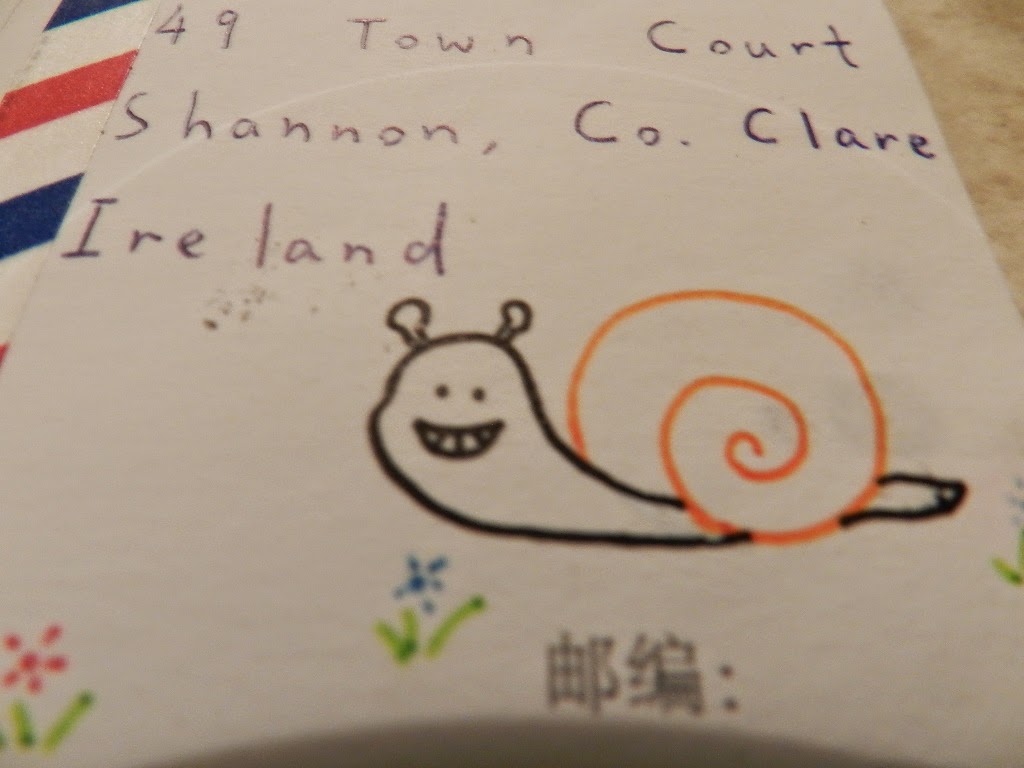 49 Town Court
Shannon, Co. Clare
Ireland
邮编: